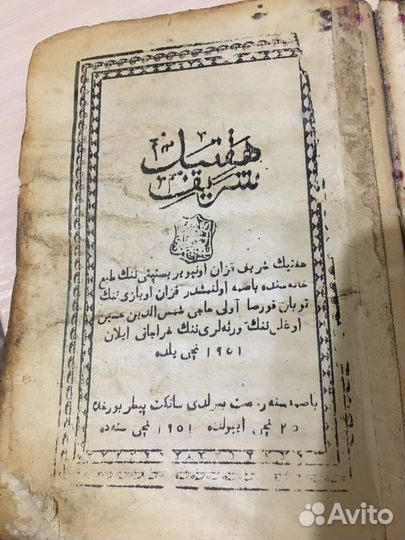 هفتيك
شريف
هفتيك شريف قزان اونيويرسيتيتى ننك طبع
خانه سنده باصمه اولنمشدر قزان اويازى ننك
توبان قورصا آولى حاجى شمس الدين حسين
اوغلى ننك ورثه لرى ننك خراجاتى ايلان
١٩٠١ نچى يلده
باصمه سنه رخصت بيرلدى سانكت پيطربورغده
٢٥ نچى اييولده ١٩٠١ نچى سنه ده
Avito